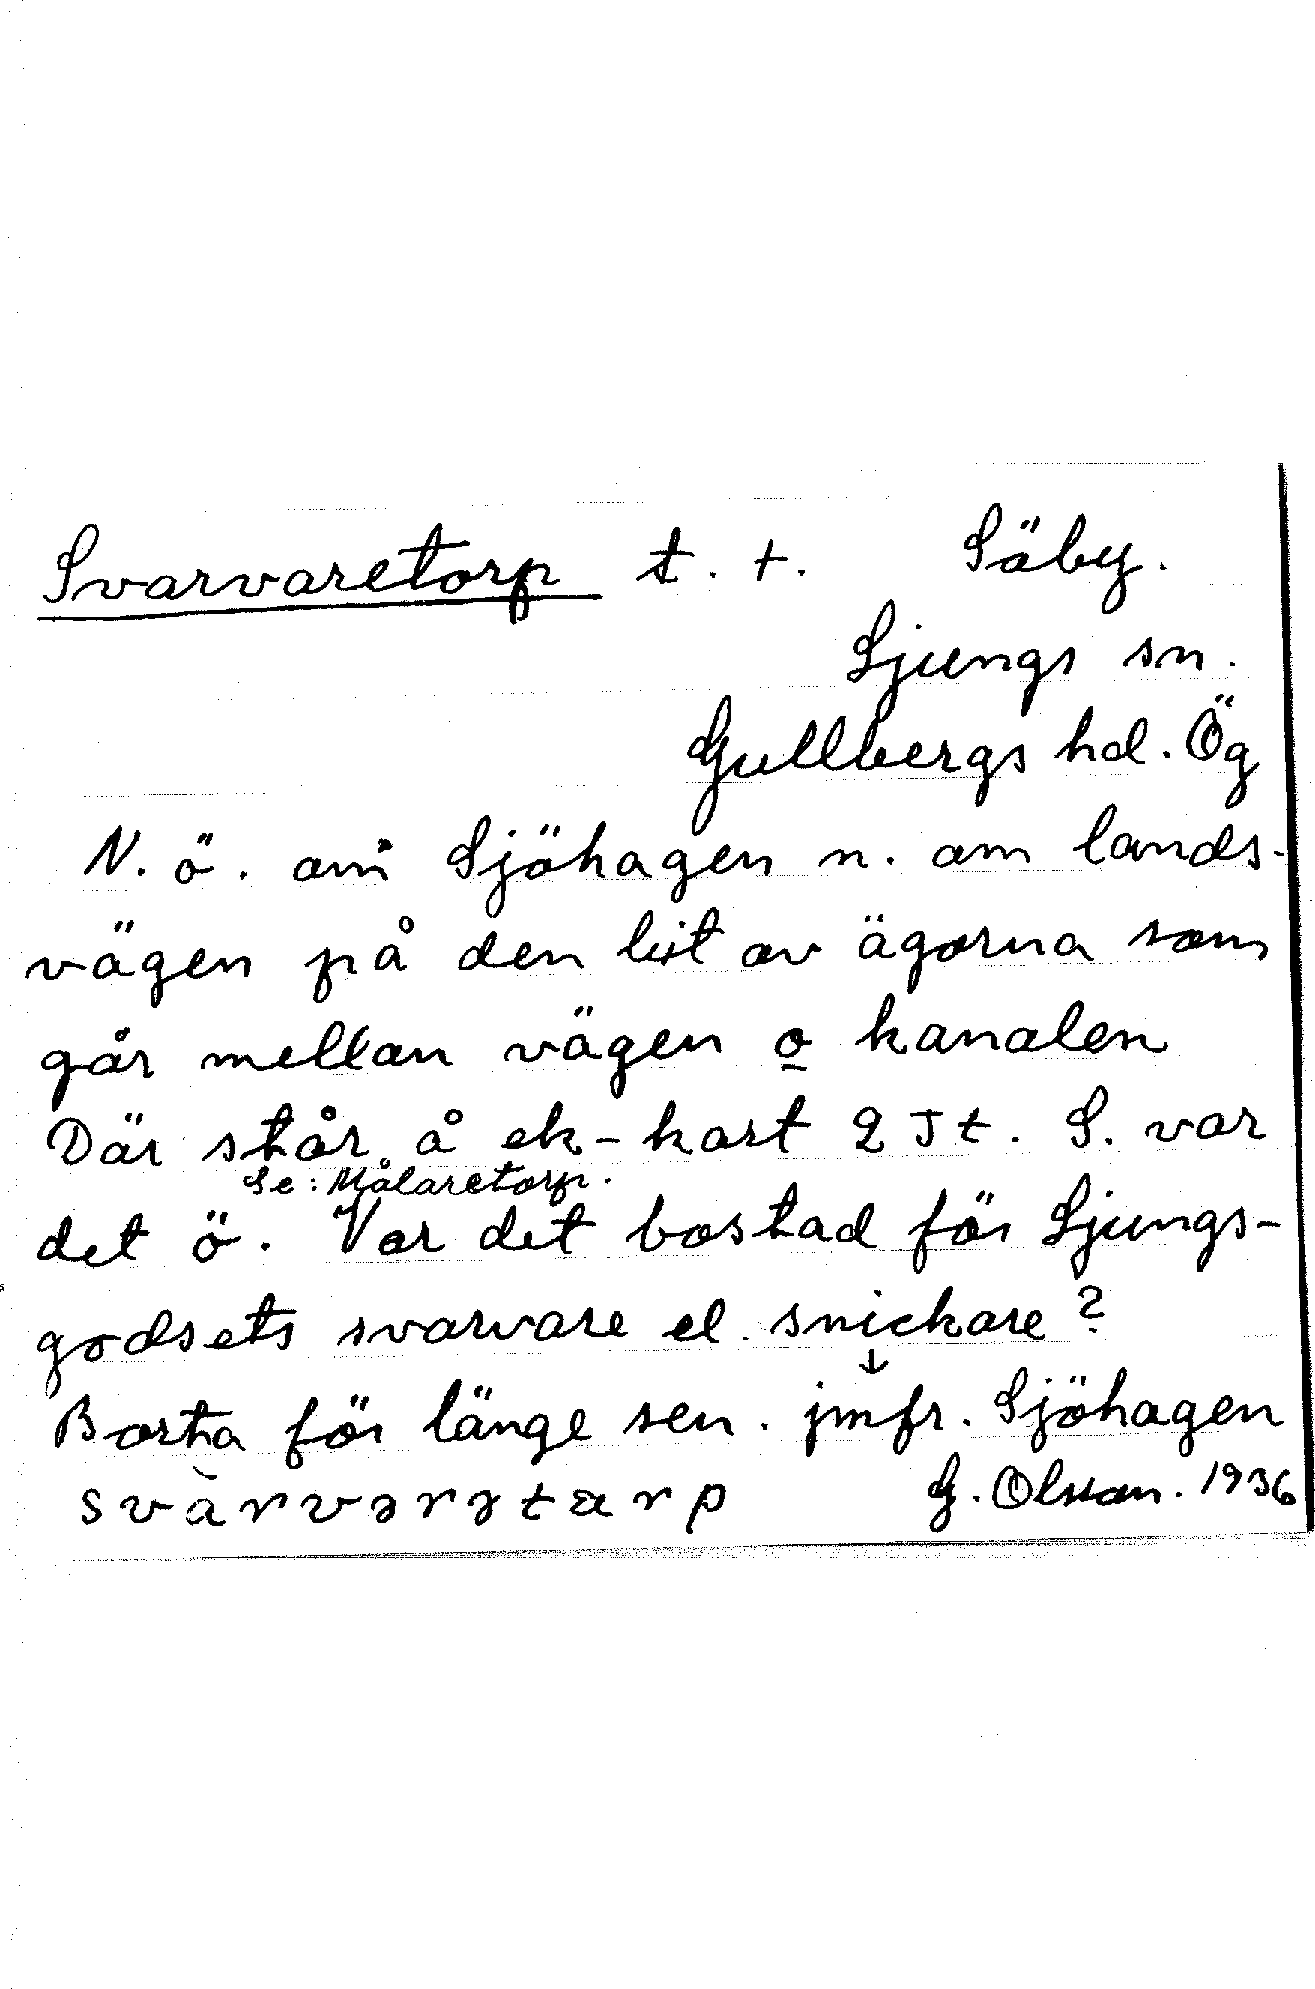 Svarvaretorp t. +. Säby.
Ljungs sn.
Gullbergs hd. Ög
N. ö. om Sjöhagen n. om lands-
vägen på den bit av ägorna som
går mellan vägen o kanalen
Där står å ek-kart 2 Jt. S. var
Se: Målaretorp.
det ö. Var det bostad för Ljungs-
godsets svarvare el. snickare?
Borta för länge sen. jmfr. Sjöhagen
svàrvərətarp G. Olsson. 1936